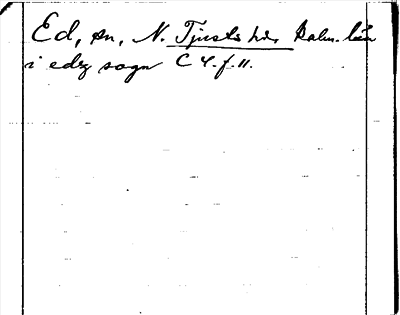 Ed, sn, N. Tjusts hd. Kalm. län
i edz sogn C 4. f. 11.